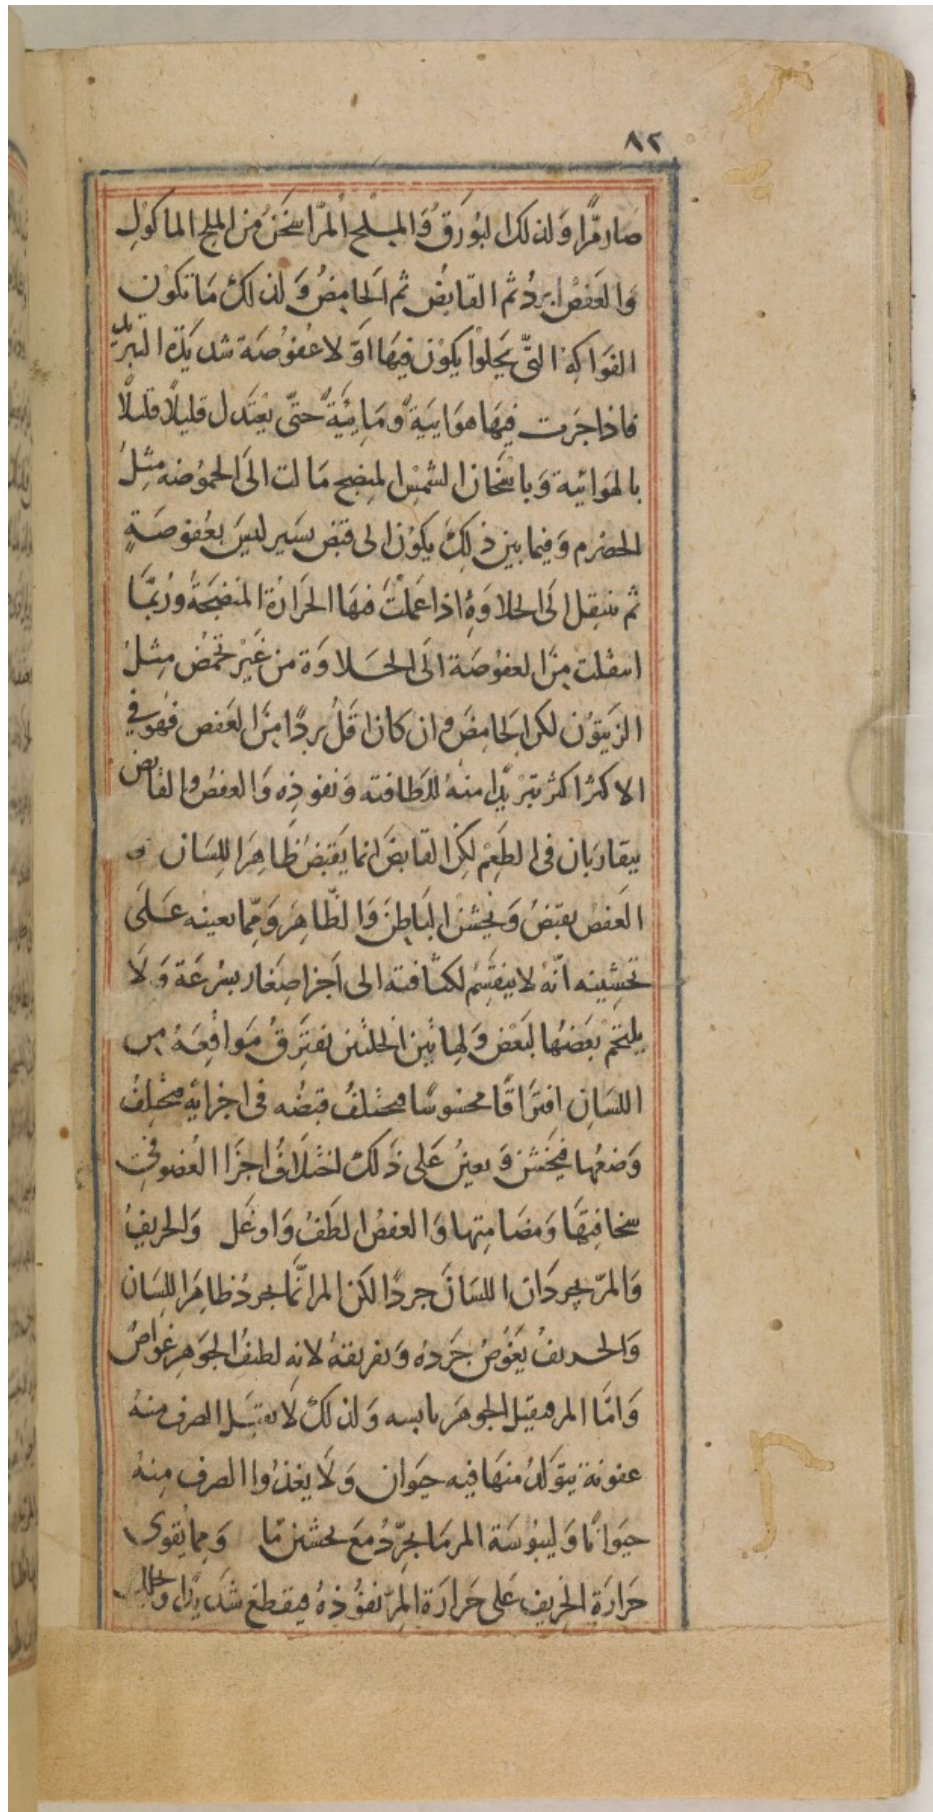 ٨٢
صار مرًّا ولذلك البورق والملح المرّ اسخن من الملح الماكول
والعفص ابرد ثم القابض ثم الحامض ولذلك ما تكون
الفواكه التى تحلوا يكون فيها اوّلا عفوصة شديدة التبريد
فاذا جرت فيها هوايية ومايية حتى يعتدل قليلا قليلا
بالهوائية وباسخان الشمس المنضج مالت الى الحموضه مثل
الحصرم وفيما بين ذلك يكون الى قبض يسير ليس بعفوصة
ثم تنتقل الى الحلاوة اذا عملت فيها الحرارة المنضجة وربما
انتقلت من العفوصة الى الحلاوة من غير تحمض مثل
الزيتون لكن الحامض وان كان اقل بردا من العفص فهو فى
الاكثر اكثر تبريدا منه للطافته ونفوذه والعفص والقابض
يتقاربان فى الطعم لكن القابض انما يقبض ظاهر اللسان و
العفص يقبض ويخشن الباطن والظاهر ومما يعينه على
تخشينه انّه لا ينقسم لكثافته الى اجزا صغار بسرعة ولا
يلتحم بعضها لبعض ولهاتين الخلتين تفترق مواقعه من
اللسان افتراقا محسوسا مختلف قبضه فى اجزائه مختلف
وضعها فيخشن ويعين على ذلك اختلاف اجزا العضو فى
سخافتها ومصامتها والعفص الطف واوغل والحريف
والمرّ يجردان اللسان جردا لكن المر انّما يجرد ظاهر اللسان
والحريف يغوص جرده وتفريقه لانه لطيف الجوهر غواص
وامّا المر فثقيل الجوهر يابسه ولذلك لا يقبل الصرف منه
عفونة يتولد منها فيه حيوان ولا يغذوا الصرف منه
حيوانا وليبوسة المر ما يجرّد مع تخشين ما ومما يقوى
حرارة الحريف على حرارة المرّ نفوذه فيقطع شديدا ويحلل